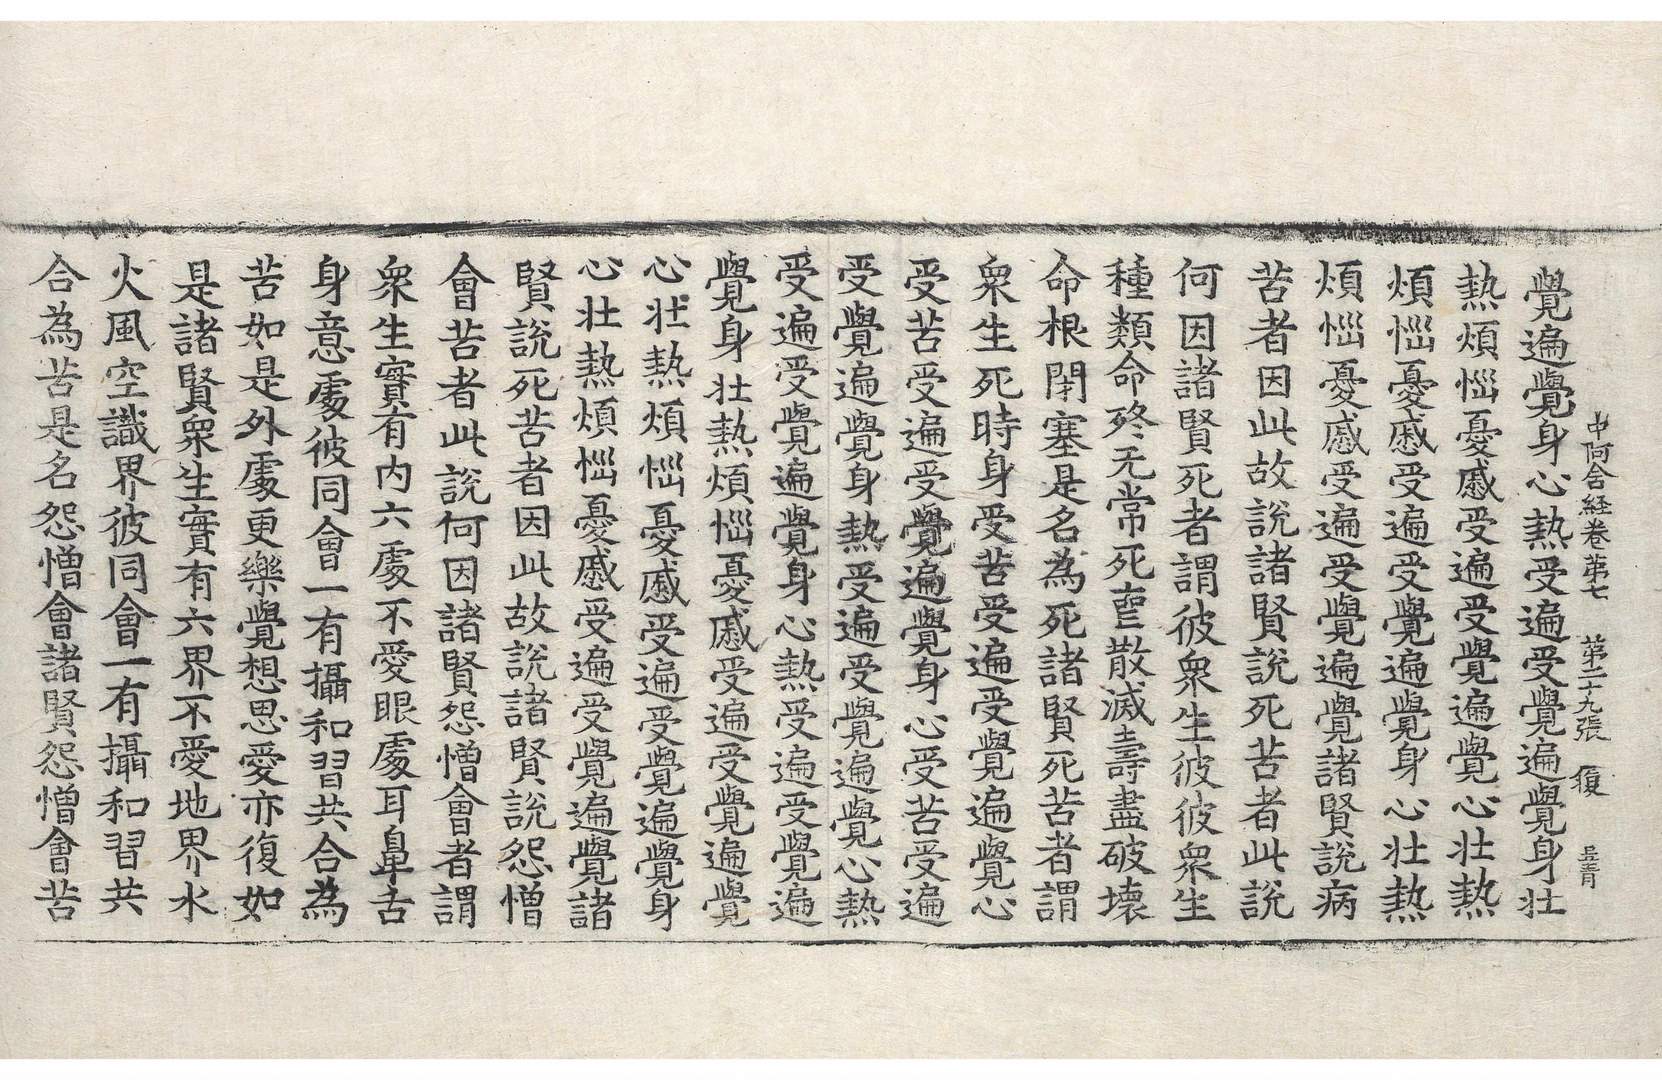 中阿含経卷第七 第二十九張 復
覺遍覺身心熱受遍受覺遍覺身壮
熱煩惱憂慼受遍受覺遍覺心壮熱
煩惱憂慼受遍受覺遍覺身心壮熱
煩惱憂慼受遍受覺遍覺諸賢說病
苦者因此故說諸賢說死苦者此說
何因諸賢死者謂彼衆生彼彼衆生
種類命終无常死喪散滅壽盡破壞
命根閉塞是名為死諸賢死苦者謂
衆生死時身受苦受遍受覺遍覺心
受苦受遍受覺遍覺身心受苦受遍
受覺遍覺身熱受遍受覺遍覺心熱
受遍受覺遍覺身心熱受遍受覺遍
覺身壮熱煩惱憂慼受遍受覺遍覺
心壮熱煩惱憂慼受遍受覺遍覺身
心壮熱煩惱憂慼受遍受覺遍覺諸
賢說死苦者因此故說諸賢說怨憎
會苦者此說何因諸賢怨憎會者謂
衆生實有内六處不愛眼處耳鼻舌
身意處彼同會一有攝和習共合為
苦如是外處更樂覺想思愛亦復如
是諸賢衆生實有六界不愛地界水
火風空識界彼同會一有攝和習共
合為苦是名怨憎會諸賢怨憎會苦